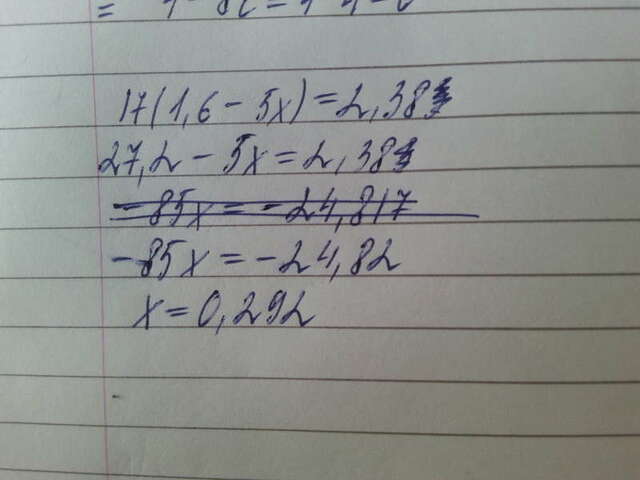 17(1,6-5x)=2,38
27,2-5x=2,38
-85x=-24,817
-85x=-24,82
x=0,292